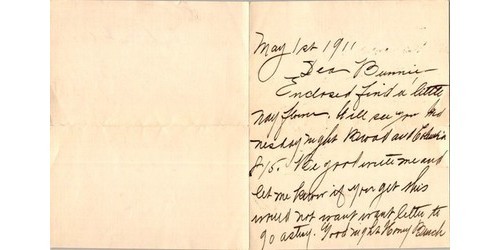 May 1st 1911
Dear Bunnie
Enclosed find a little
May flower. Will see you Wed
nesday night Broad and Columbia
8/5. Be good write me and
let me know if you get this
would not want letter to
go astray. Good night Honey Bunch